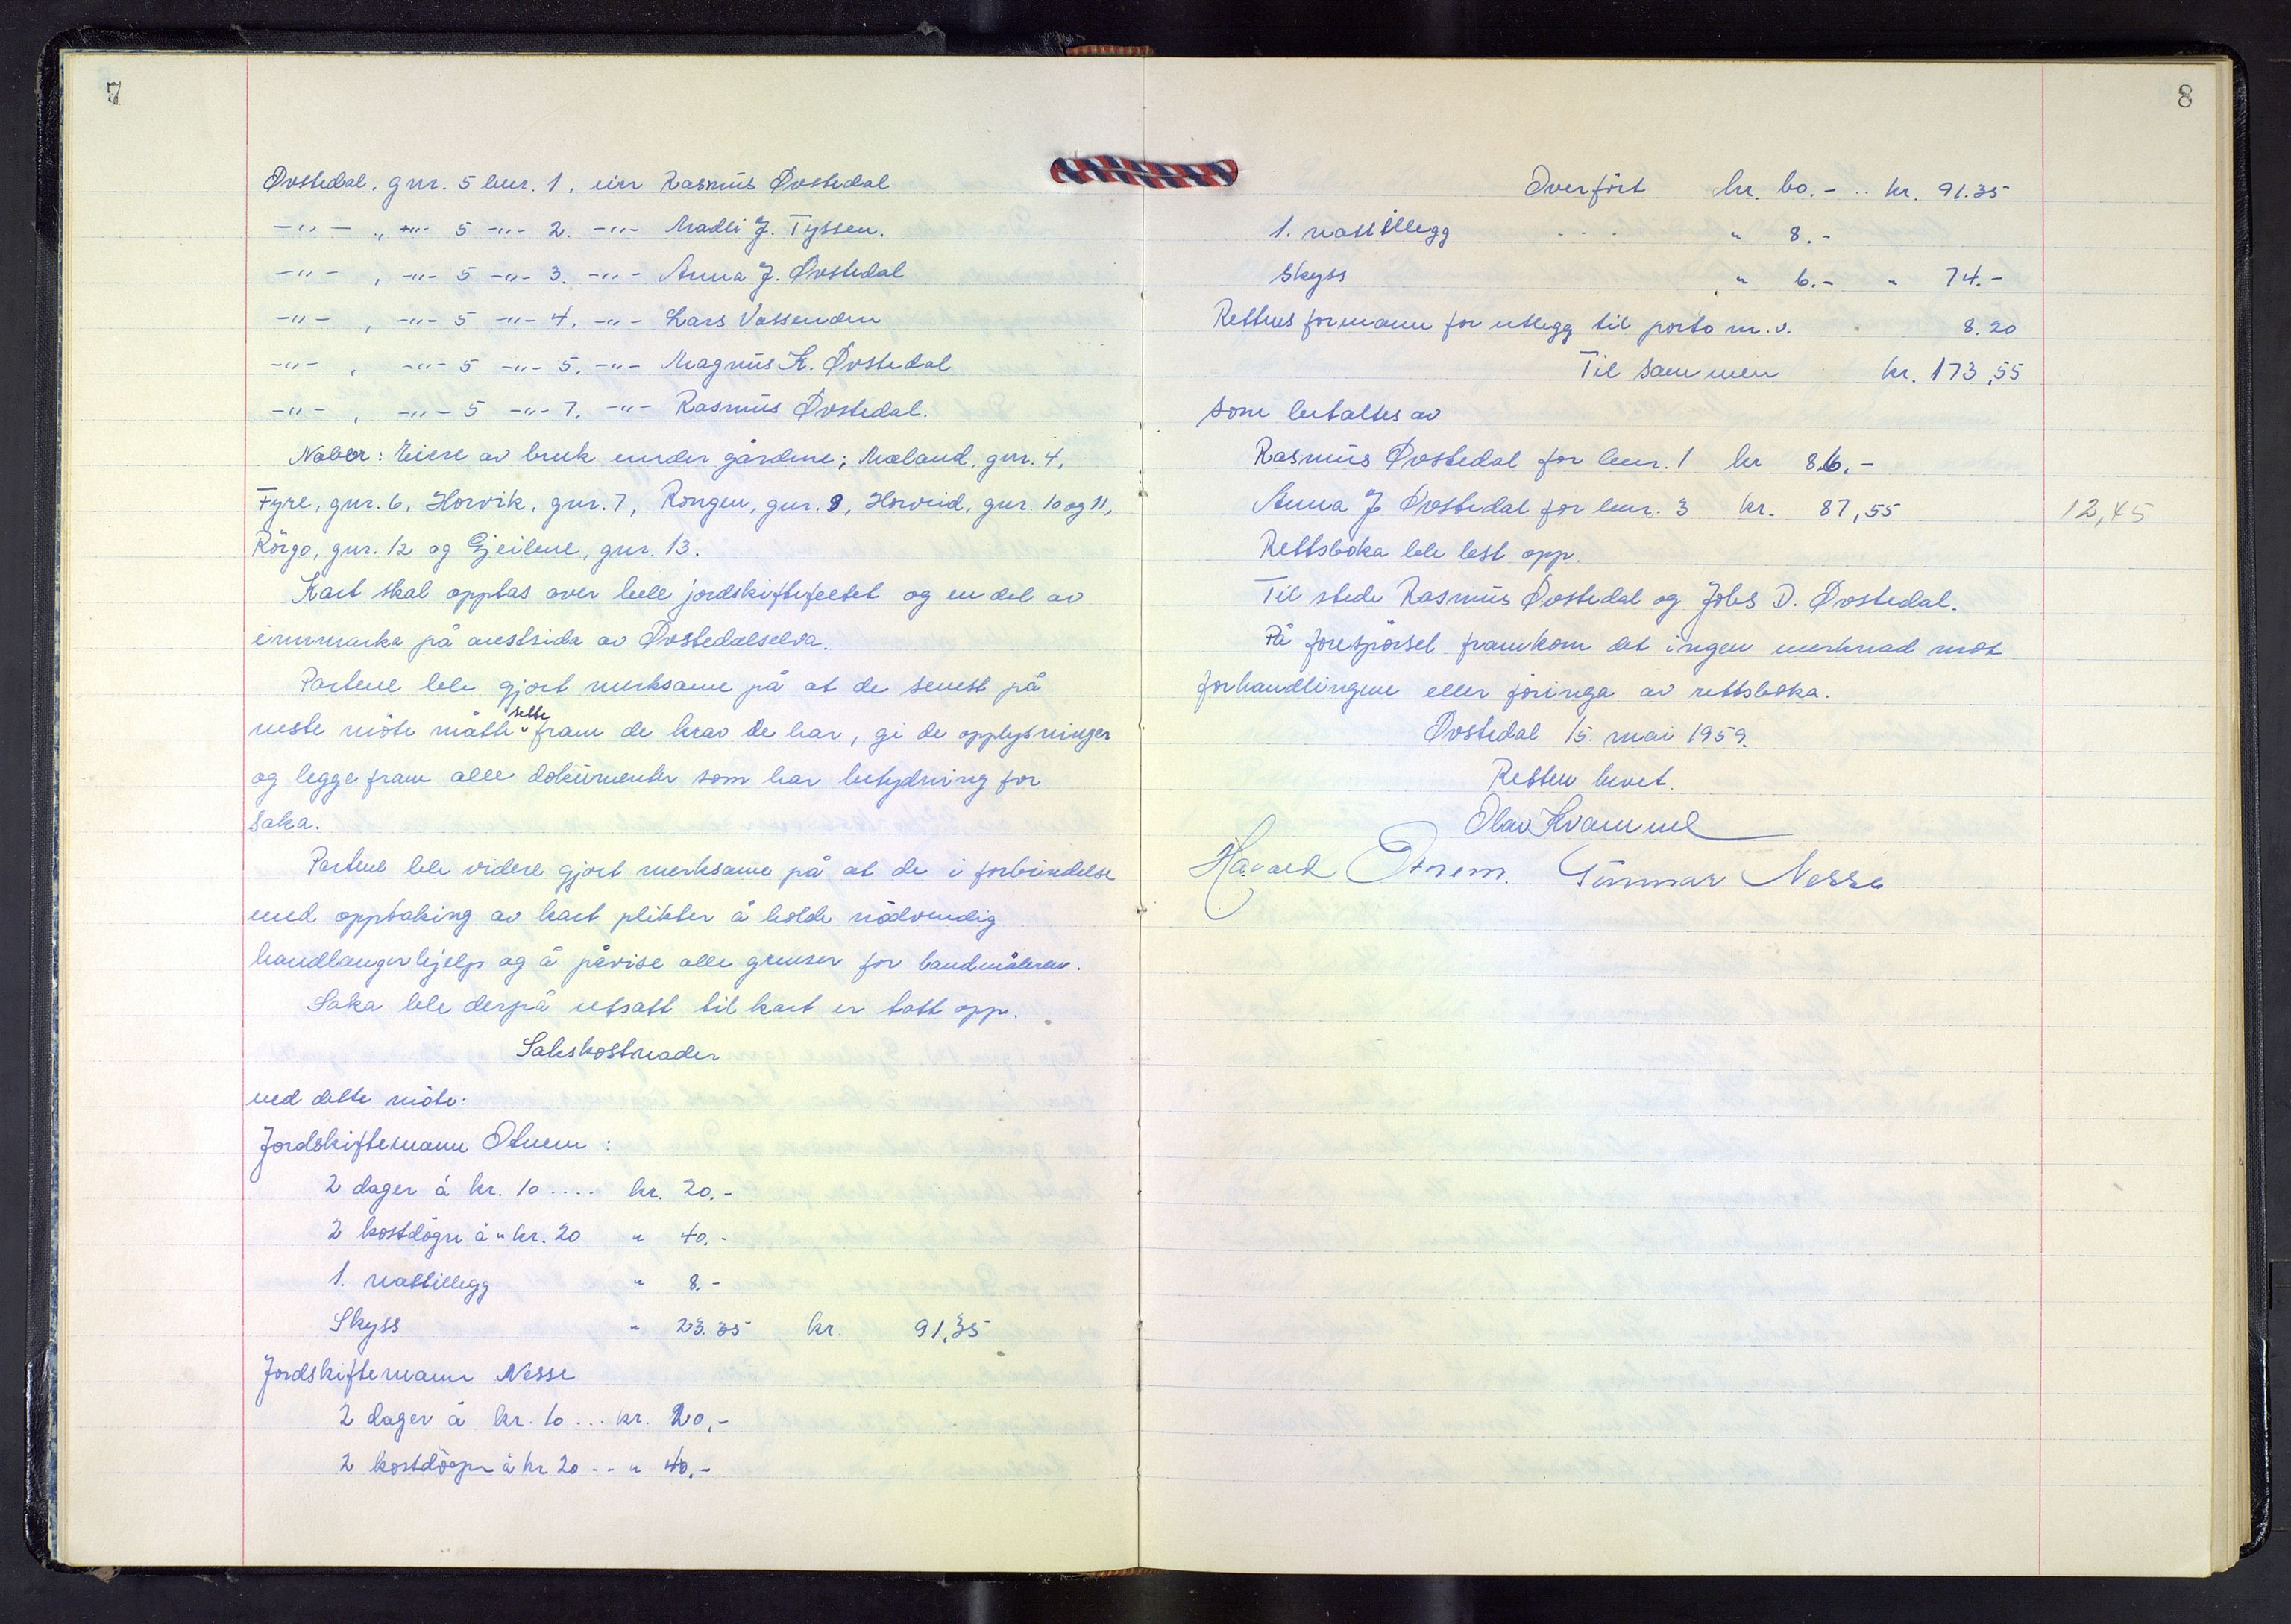 7
Øvstedal, gnr. 5 bnr. 1, eier Rasmus Øvstedal
-"- „ -"- 5 -"- 2. -"- Madli J. Tyssen.
-"- , -"- 5 -"- 3. -"- Anna J. Øvstedal
-"- , -"- 5 -"- 4. -"- Lars Vassenden
-"- , -"- 5 -"- 5. -"- Magnus K. Øvstedal
-"- , -"- 5 -"- 7. -"- Rasmus Øvstedal.
Naboer: Eiere av bruk under gårdene; Mæland, gnr. 4,
Fyre, gnr. 6, Horvik, gnr. 7, Rongen, gnr. 9, Horveid, gnr. 10 og 11,
Rørgo, gnr. 12 og Gjeilene, gnr. 13.
Kart skal opptas over hele jordskiftefeltet og en del av
innmarka på austsida av Øvstedalselva.
Partene ble gjort merksame på at de senest på
neste möte måtte sette fram de krav de har, gi de opplysninger
og legge fram alle dokumenter som har betydning for
saka.
Partene ble videre gjort merksame på at de i forbindelse
med opptaking av kart plikter å holde nödvendig
handlangerhjelp og å påvise alle grenser for landmåleren.
Saka ble derpå utsatt til kart er tatt opp.
Sakskostnader
ved dette möte:
Jordskiftemann Otnem:
2 dager á kr. 10 .... kr. 20.-
2 kostdøgn á " kr. 20 " 40.-
1. nattillegg " 8.-
Skyss " 23.35 kr. 91,35
Jordskiftemann Nesse
2 dager á kr. 10 ... kr. 20,-
2 kostdøgn á kr 20 .. " 40.-
8
Overfört kr. 60.- .. kr. 91.35
1. nattillegg . . . " 8.-
Skyss " 6.- " 74.-
Rettens formann for utlegg til porto m.v. 8.20
Til sammen kr. 173,55
som betaltes av
Rasmus Øvstedal for bnr. 1 kr 86.-
Anna J Øvstedal for bnr. 3 kr. 87,55
12,45
Rettsboka ble lest opp.
Til stede Rasmus Øvstedal og Johs D. Øvstedal.
På forespörsel framkom det ingen merknad mot
forhandlingene eller föringa av rettsboka.
Øvstedal 15. mai 1959.
Retten hevet.
Olav Kvammel
Håvard Otnem. Gunnar Nesse